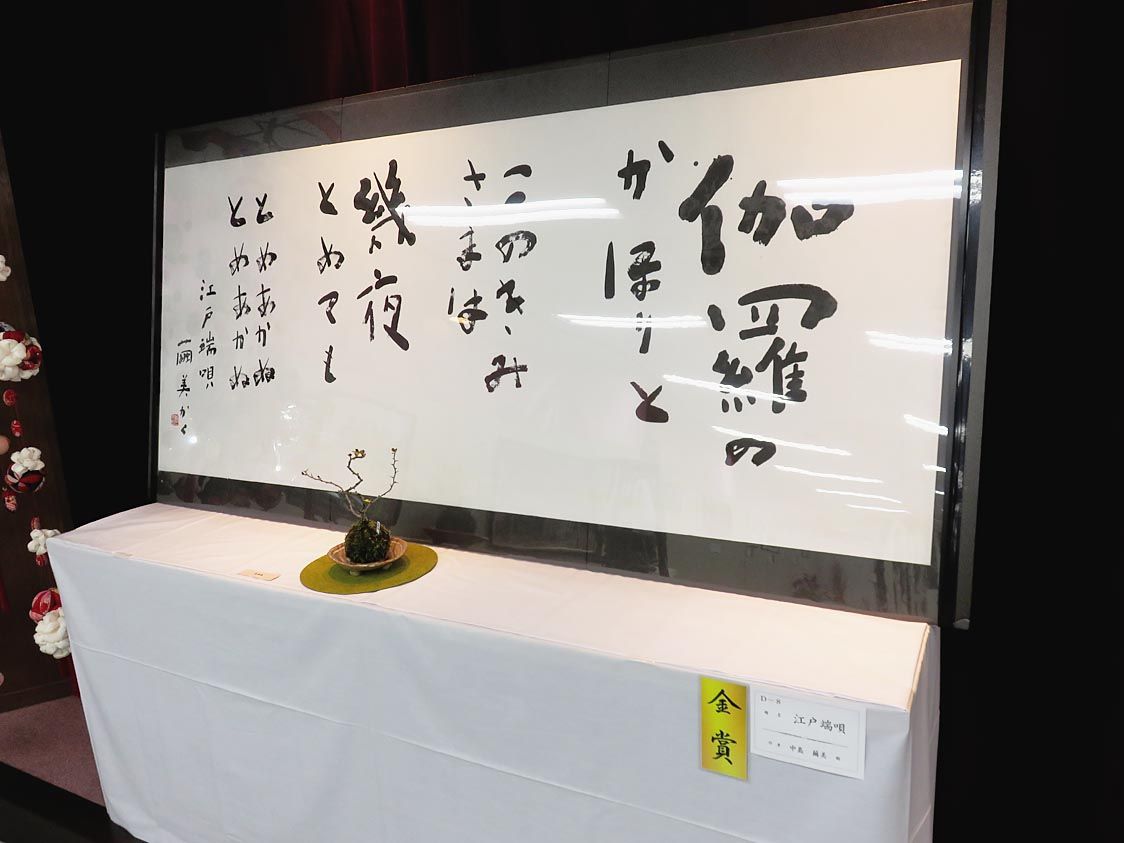 伽羅の
かほりと
このきみ
さまは
幾夜
とめても
とめあかぬ
とめあかぬ
江戸端唄
繭美かく
金賞
D-8
江戸端唄
中島 繭美